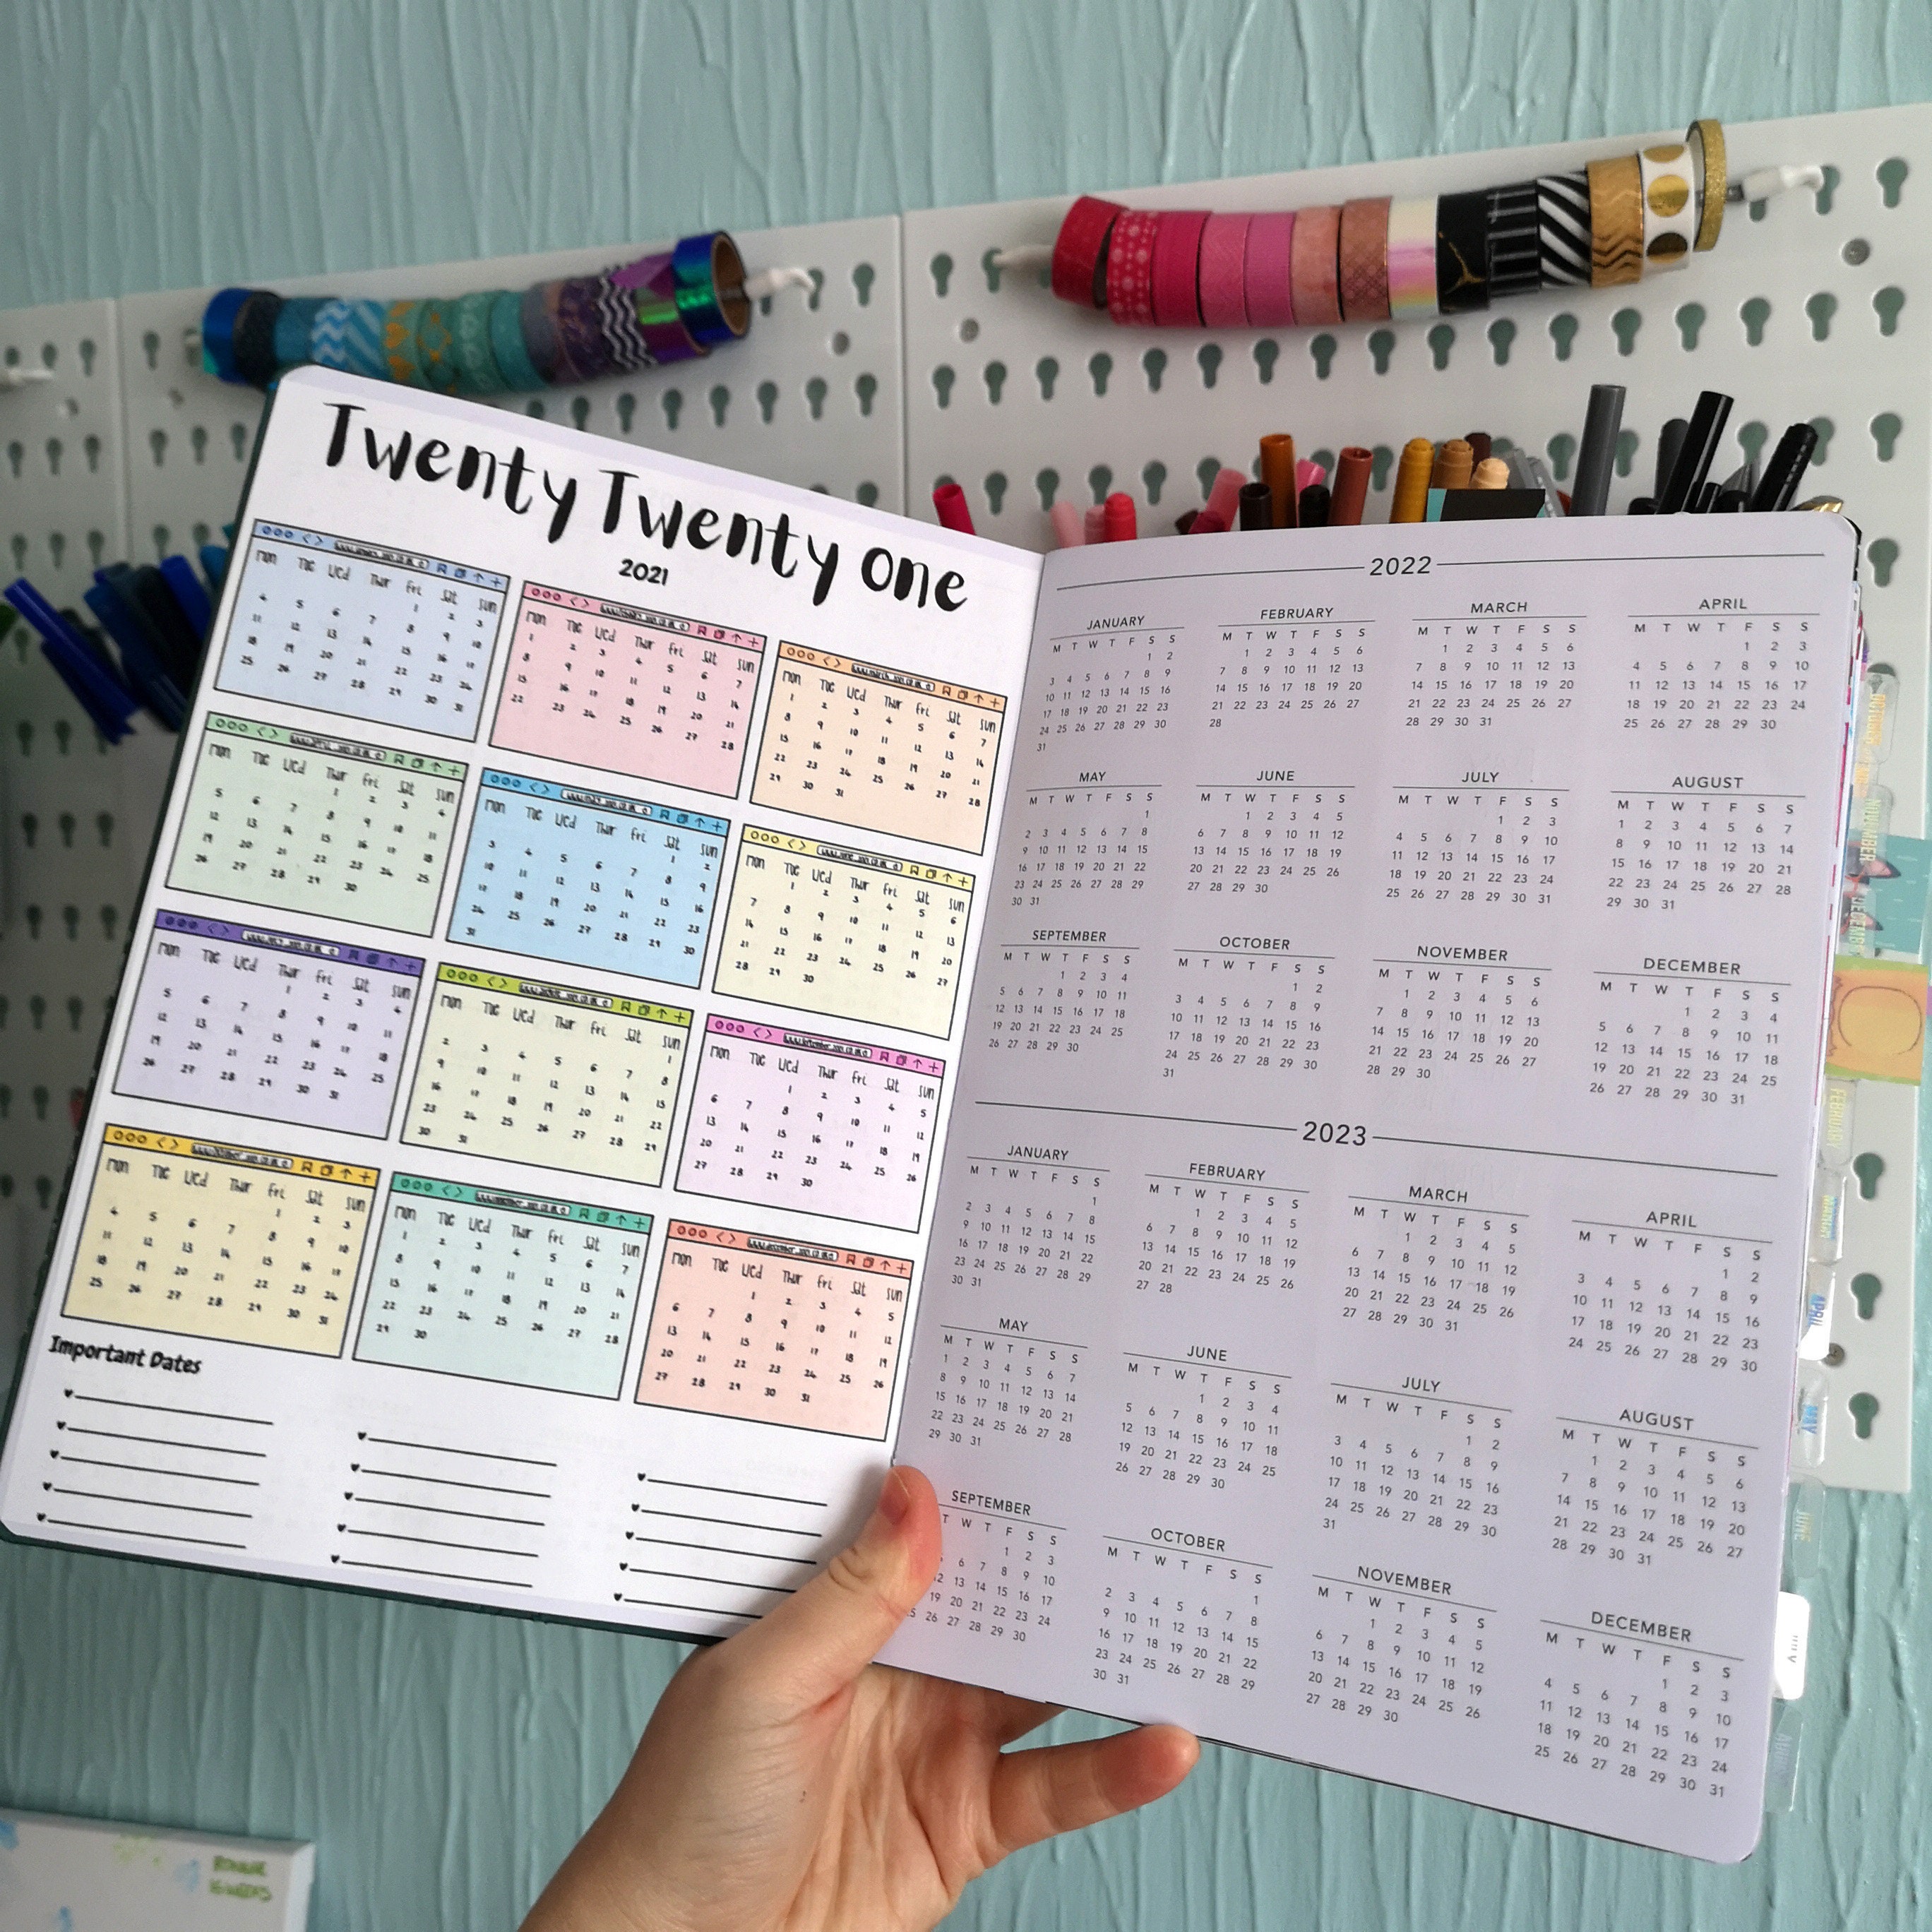 Twenty Twenty One
2021
Mon Tue Wed Thur Fri Sat Sun
1 2 3
4 5 6 7 8 9 10
11 12 13 14 15 16 17
18 19 20 21 22 23 24
25 26 27 28 29 30 31
Mon Tue Wed Thur Fri Sat Sun
1 2 3 4 5 6 7
8 9 10 11 12 13 14
15 16 17 18 19 20 21
22 23 24 25 26 27 28
Mon Tue Wed Thur Fri Sat Sun
1 2 3 4 5 6 7
8 9 10 11 12 13 14
15 16 17 18 19 20 21
22 23 24 25 26 27 28
29 30 31
Mon Tue Wed Thur Fri Sat Sun
1 2 3 4
5 6 7 8 9 10 11
12 13 14 15 16 17 18
19 20 21 22 23 24 25
26 27 28 29 30
Mon Tue Wed Thur Fri Sat Sun
1 2
3 4 5 6 7 8 9
10 11 12 13 14 15 16
17 18 19 20 21 22 23
24 25 26 27 28 29 30
31
Mon Tue Wed Thur Fri Sat Sun
1 2 3 4 5 6
7 8 9 10 11 12 13
14 15 16 17 18 19 20
21 22 23 24 25 26 27
28 29 30
Mon Tue Wed Thur Fri Sat Sun
1 2 3 4
5 6 7 8 9 10 11
12 13 14 15 16 17 18
19 20 21 22 23 24 25
26 27 28 29 30 31
Mon Tue Wed Thur Fri Sat Sun
1
2 3 4 5 6 7 8
9 10 11 12 13 14 15
16 17 18 19 20 21 22
23 24 25 26 27 28 29
30 31
Mon Tue Wed Thur Fri Sat Sun
1 2 3 4 5
6 7 8 9 10 11 12
13 14 15 16 17 18 19
20 21 22 23 24 25 26
27 28 29 30
Mon Tue Wed Thur Fri Sat Sun
1 2 3
4 5 6 7 8 9 10
11 12 13 14 15 16 17
18 19 20 21 22 23 24
25 26 27 28 29 30 31
Mon Tue Wed Thur Fri Sat Sun
1 2 3 4 5 6 7
8 9 10 11 12 13 14
15 16 17 18 19 20 21
22 23 24 25 26 27 28
29 30
Mon Tue Wed Thur Fri Sat Sun
1 2 3 4 5
6 7 8 9 10 11 12
13 14 15 16 17 18 19
20 21 22 23 24 25 26
27 28 29 30 31
Important Dates
2022
JANUARY
M T W T F S S
1 2
3 4 5 6 7 8 9
10 11 12 13 14 15 16
17 18 19 20 21 22 23
24 25 26 27 28 29 30
31
FEBRUARY
M T W T F S S
1 2 3 4 5 6
7 8 9 10 11 12 13
14 15 16 17 18 19 20
21 22 23 24 25 26 27
28
MARCH
M T W T F S S
1 2 3 4 5 6
7 8 9 10 11 12 13
14 15 16 17 18 19 20
21 22 23 24 25 26 27
28 29 30 31
APRIL
M T W T F S S
1 2 3
4 5 6 7 8 9 10
11 12 13 14 15 16 17
18 19 20 21 22 23 24
25 26 27 28 29 30
MAY
M T W T F S S
1
2 3 4 5 6 7 8
9 10 11 12 13 14 15
16 17 18 19 20 21 22
23 24 25 26 27 28 29
30 31
JUNE
M T W T F S S
1 2 3 4 5
6 7 8 9 10 11 12
13 14 15 16 17 18 19
20 21 22 23 24 25 26
27 28 29 30
JULY
M T W T F S S
1 2 3
4 5 6 7 8 9 10
11 12 13 14 15 16 17
18 19 20 21 22 23 24
25 26 27 28 29 30 31
AUGUST
M T W T F S S
1 2 3 4 5 6 7
8 9 10 11 12 13 14
15 16 17 18 19 20 21
22 23 24 25 26 27 28
29 30 31
SEPTEMBER
M T W T F S S
1 2 3 4
5 6 7 8 9 10 11
12 13 14 15 16 17 18
19 20 21 22 23 24 25
26 27 28 29 30
OCTOBER
M T W T F S S
1 2
3 4 5 6 7 8 9
10 11 12 13 14 15 16
17 18 19 20 21 22 23
24 25 26 27 28 29 30
31
NOVEMBER
M T W T F S S
1 2 3 4 5 6
7 8 9 10 11 12 13
14 15 16 17 18 19 20
21 22 23 24 25 26 27
28 29 30
DECEMBER
M T W T F S S
1 2 3 4
5 6 7 8 9 10 11
12 13 14 15 16 17 18
19 20 21 22 23 24 25
26 27 28 29 30 31
2023
JANUARY
M T W T F S S
1
2 3 4 5 6 7 8
9 10 11 12 13 14 15
16 17 18 19 20 21 22
23 24 25 26 27 28 29
30 31
FEBRUARY
M T W T F S S
1 2 3 4 5
6 7 8 9 10 11 12
13 14 15 16 17 18 19
20 21 22 23 24 25 26
27 28
MARCH
M T W T F S S
1 2 3 4 5
6 7 8 9 10 11 12
13 14 15 16 17 18 19
20 21 22 23 24 25 26
27 28 29 30 31
APRIL
M T W T F S S
1 2
3 4 5 6 7 8 9
10 11 12 13 14 15 16
17 18 19 20 21 22 23
24 25 26 27 28 29 30
MAY
M T W T F S S
1 2 3 4 5 6 7
8 9 10 11 12 13 14
15 16 17 18 19 20 21
22 23 24 25 26 27 28
29 30 31
JUNE
M T W T F S S
1 2 3 4
5 6 7 8 9 10 11
12 13 14 15 16 17 18
19 20 21 22 23 24 25
26 27 28 29 30
JULY
M T W T F S S
1 2
3 4 5 6 7 8 9
10 11 12 13 14 15 16
17 18 19 20 21 22 23
24 25 26 27 28 29 30
31
AUGUST
M T W T F S S
1 2 3 4 5 6
7 8 9 10 11 12 13
14 15 16 17 18 19 20
21 22 23 24 25 26 27
28 29 30 31
SEPTEMBER
T W T F S S
1 2 3
6 7 8 9 10
13 14 15 16 17
19 20 21 22 23 24
26 27 28 29 30
OCTOBER
M T W T F S S
1
2 3 4 5 6 7 8
9 10 11 12 13 14 15
16 17 18 19 20 21 22
23 24 25 26 27 28 29
30 31
NOVEMBER
M T W T F S S
1 2 3 4 5
6 7 8 9 10 11 12
13 14 15 16 17 18 19
20 21 22 23 24 25 26
27 28 29 30
DECEMBER
M T W T F S S
1 2 3
4 5 6 7 8 9 10
11 12 13 14 15 16 17
18 19 20 21 22 23 24
25 26 27 28 29 30 31
OCTOBER
NOVEMBER
FEBRUARY
MARCH
APRIL
MAY
JUNE